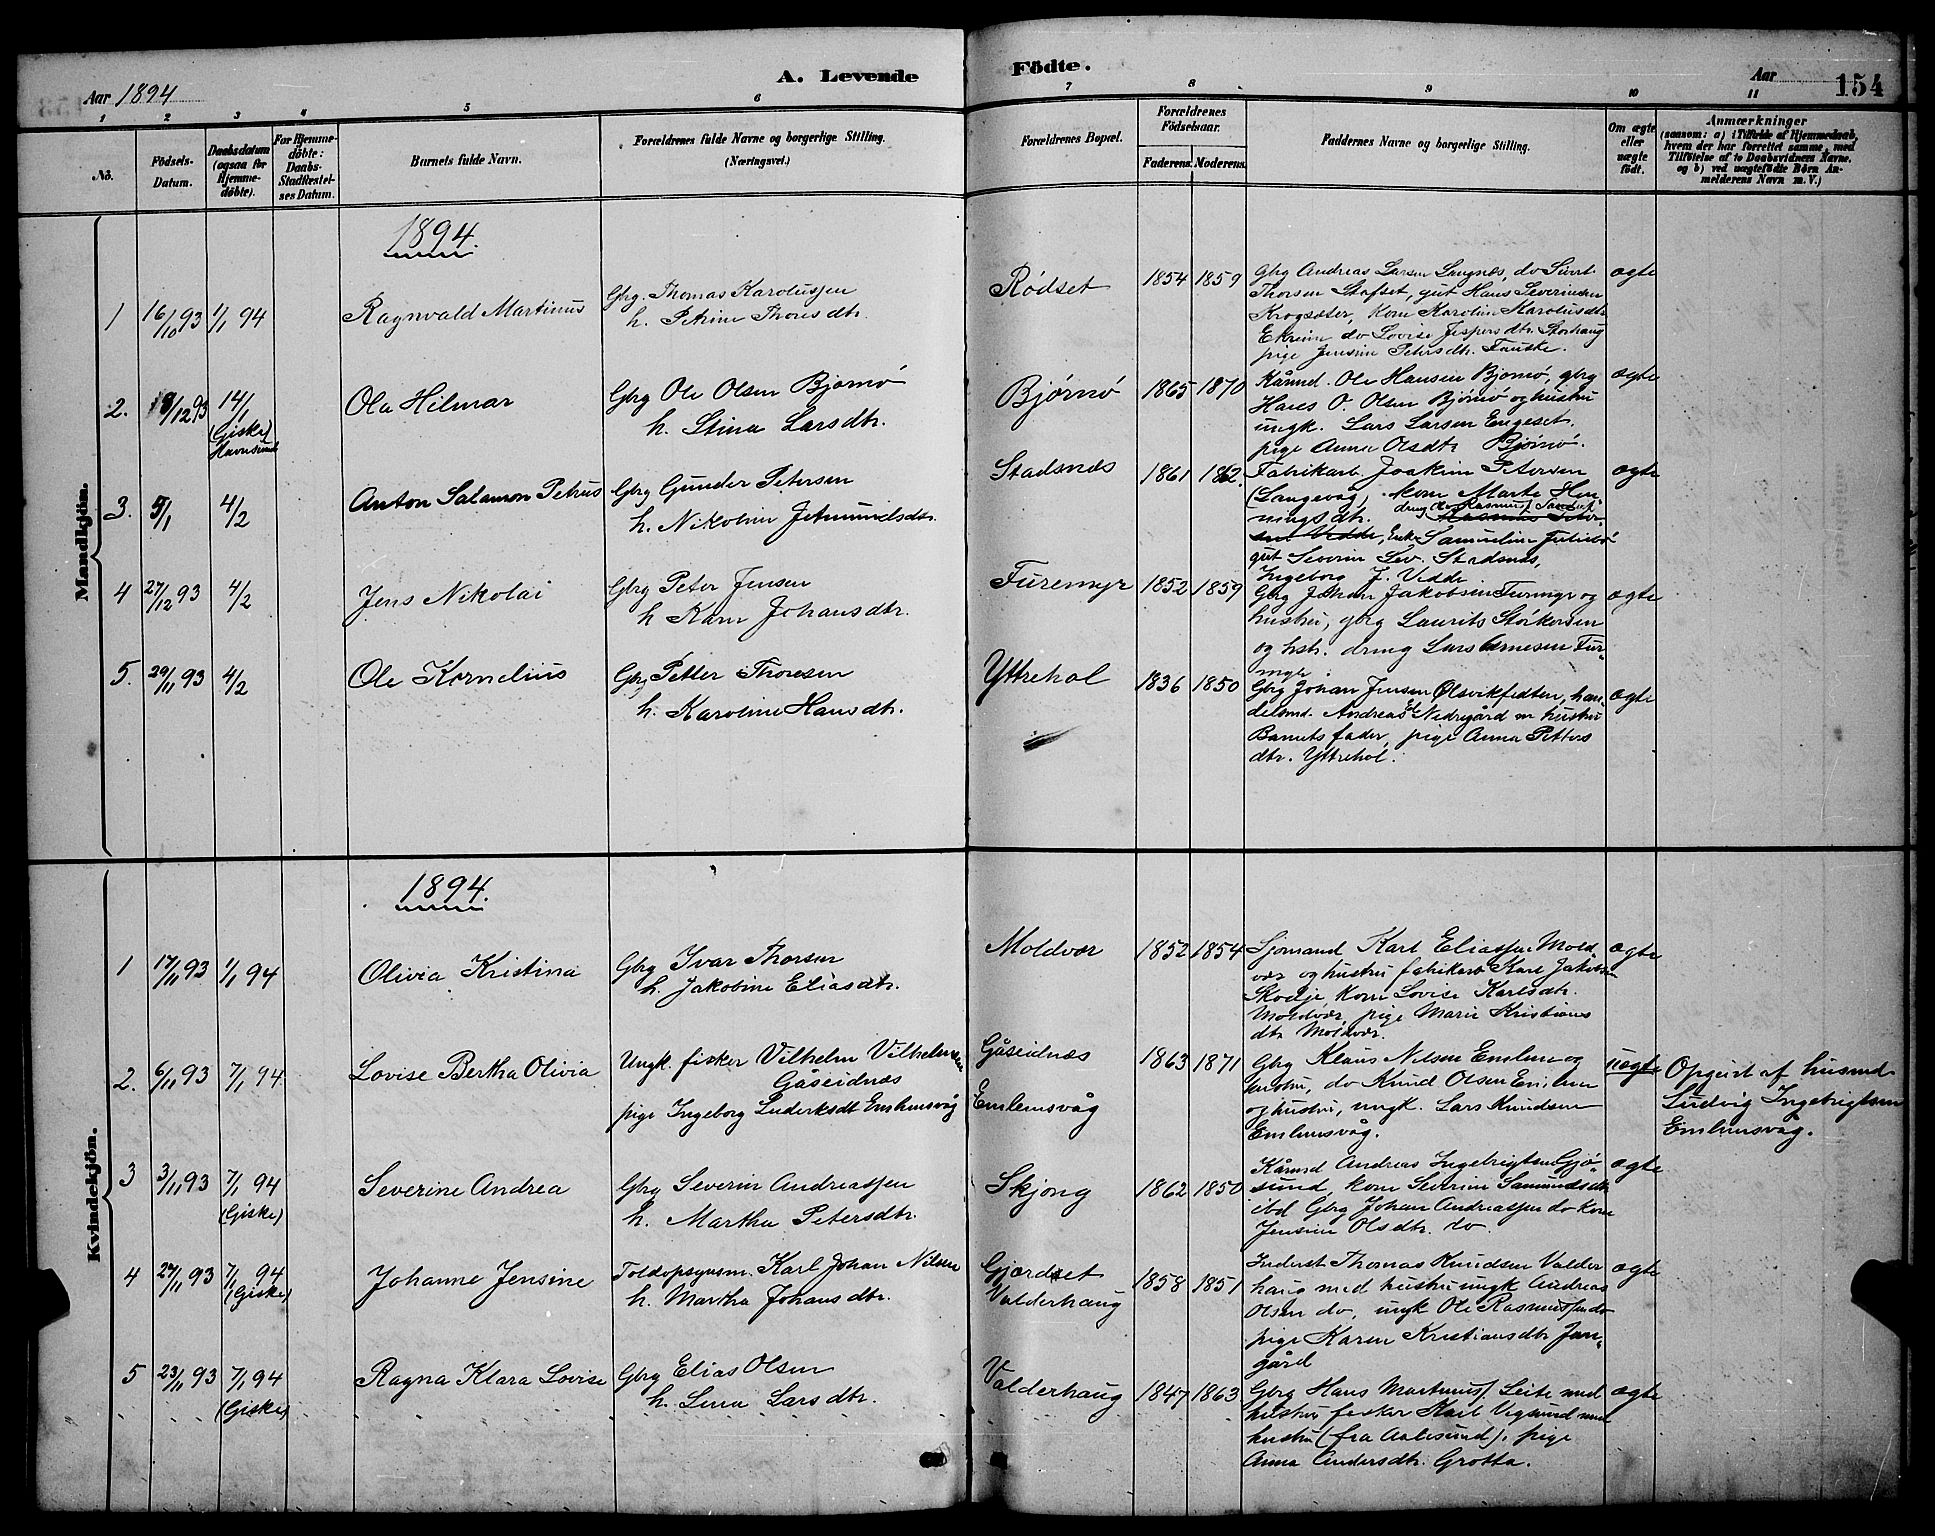 A. Levende Födte.
Aar 1894
Aar 154
1 2 3 4 5 6 7 8 9 10 11
No.
Födsels-Datum.
Daabsdatum (ogsaa for Hjemmedöbte).
For Hjemmedöbte: Daabs-Stadfæstelses Datum.
Barnets fulde Navn.
Forældrenes fulde Navne og borgerlige Stilling.
(Næringsvei.)
Forældrenes Bopæl.
Forældrenes Födselsaar.
Faderens. Moderens.
Faddernes Navne og borgerlige Stilling.
Om ægte eller uægte födt.
Anmærkninger
(saasom: a) i Tilfælde af Hjemmedaab, hvem der har forrettet samme, med Tilföielse af to Daabsvidners Navne, og b) ved uægtefödte Börn Anmelderens Navn m. V.)
Mandkjön.
1894.
1 16/10 93 1/1 94 Ragnvald Martinus
Gbg. Thomas Karolussen
h. Petrine Thoresdtr.
Rødset 1854 1859
Gbg Andreas Larsen Langnæs, do Sivert
Thorsen Stafset, gut Hans Severinsen
Krogsæter, kone Karoline Karolusdtr
Ekreim do Lovise Jespersdtr. Storhaug
pige Jensine Petersdtr. Fauske.
ægte
2. 8/12 93 14/1 (Giske) Havnsund
Ola Hilmar
Gbrg Ole Olsen Bjørnø
h. Stina Larsdtr.
Bjørnø 1865 1870
Kårmd. Ole Hansen Bjørnø, gbrg
Hans O. Olsen Bjørnø og hustru
ungk. Lars Larsen Engeset.
pige Anna Olsdtr Bjørnø.
ægte
3. 5/1 4/2 Anton Salamon Petrus
Gbrg Gunder Petersen
h. Nikoline Jetmundsdtr.
Stadsnæs 1861 1862.
Fabrikarb. Joakim Petersen
(Langevåg), kone Marte Hen-
ningsdtr. dreng do Rasmus
Rasmus Peter-
sen Vedde, Enke Samueline
gut Severin Sev. Stadsnæs,
Ingeborg J. Vedde
ægte
4 27/12 93 4/2 Jens Nikolai
Gbrg Peter Jensen
h Karn Johansdtr.
Furemyr 1852 1859
Gbrg Johan Jakobsen Furmyr og
hustru, gbrg Laurits Størkersen
og hstr. dreng Lars Arnesen Fur-
myr.
ægte
5. 29/11 93 4/2 Ole Kornelius
Gbrg Petter Thoresen
h. Karoline Hansdtr.
Yttrehol 1836 1850
Gbrg Johan Jensen Ølsvikfedten, han-
delsmd. Andreas Nedregård m hustru
Barnets fader, pige Anna Petters
dtr. Yttrehol.
ægte
Kvindekjön.
1894.
1 17/11 93 1/1 94 Olivia Kristina
Gbrg Ivar Thorsen
h. Jakobine Eliasdtr.
Moldvær 1852 1854
Sjømand Karl Eliassen Mold
vær og hustru fabrikarb Karl Jakobsen
Skodje, kone Lovise Karlsdtr.
Moldvær, pige Marie Kristians
dtr Moldvær.
ægte
2. 6/11 93 7/1 94 Lovise Bertha Olivia
Ungk. fisker Vilhelm Vilhelmsen
Gåseidnæs
pige Ingeborg Luderksdt Emlemsvåg
Gåseidnæs
Emlemsvåg
1863 1871
Gbrg Klaus Nilsen Emlem og
hustru, do Knud Olsen Emlem
og hustru, ungk. Lars Knudsen
Emlemsvåg.
uægte
Opgivet af husmd
Ludvig Ingebrigtsen
Emlemsvåg.
3 3/11 93 7/1 94 (Giske) Severine Andrea
Gbrg Severin Andreassen
h. Martha Petersdtr.
Skjong 1862 1850
Kårmd Andreas Ingebrigtsen Gjø-
sund, kone Severine Samundsdtr
ibd Gbrg Johan Andreassen do kone
Jensine Olsdtr. do.
ægte
4 27/11 93 7/1 94 (Giske) Johanne Jensine
Toldopsynsm. Karl Johan Nilsen
h. Martha Johansdtr.
Gjærdset
Valderhaug
1858 1851
Inderst Thomas Knudsen Valder
haug med hustru ungk Andreas
Olsen do, ungk Ole Rasmussen do
pige Karen Kristiansdtr Jan-
gård
ægte
5 23/11 93 7/1 94 (Giske) Ragna Klara Lovise
Gbrg Elias Olsen
h. Lina Larsdtr.
Valderhaug 1847 1863
Gbrg Hans Martinus Leite med
hustru fisker Karl Vegsund med
hustru (fra Aalesund), pige
Anna Andersdtr. Grotta.
ægte